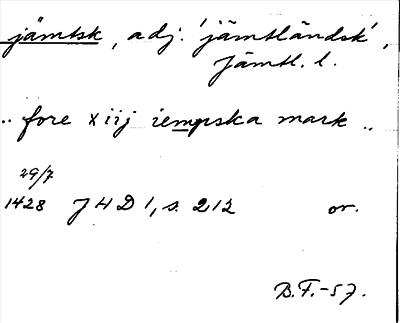 jämtsk, adj. 'jämtländsk',
Jämtl. l.
.. fore xiij iempska mark ..
29/7
1428 JHD 1, s. 212 or.
B.F.-57.